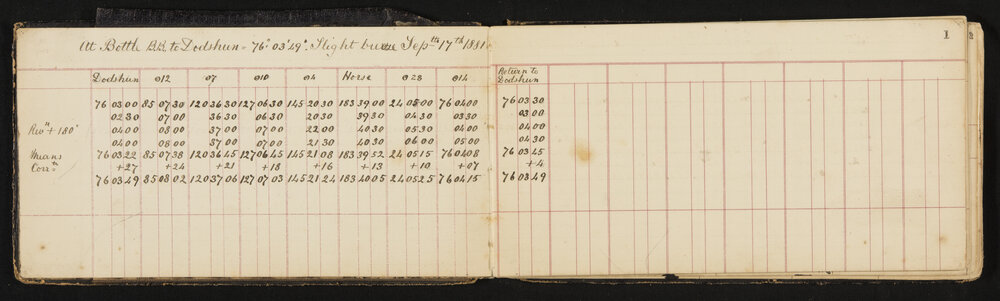 At Bottle B.B. to Dodshun = 76° 03' 49". Slight breeze Sepᵗʰ 17ᵗʰ 1881
1
Dodshun ⊙12 ⊙7 ⊙10 ⊙4 Horse ⊙28 ⊙14 Return to Dodshun
76 03 00 85 07 30 120 36 30 127 06 30 145 20 30 183 39 00 24 05 00 76 04 00 76 03 30
02 30 07 00 36 30 06 30 20 30 39 30 04 30 03 30 03 00
Revⁿ + 180° 04 00 08 00 37 00 07 00 22 00 40 30 05 30 04 00 04 00
04 00 08 00 37 00 07 00 21 30 40 30 06 00 05 00 04 30
Means 76 03 22 85 07 38 120 36 45 127 06 45 145 21 08 183 39 52 24 05 15 76 04 08 76 03 45
Corrⁿ +27 +24 +21 +18 +16 +13 +10 +07 +4
76 03 49 85 08 02 120 37 06 127 07 03 145 21 24 183 40 05 24 05 25 76 04 15 76 03 49